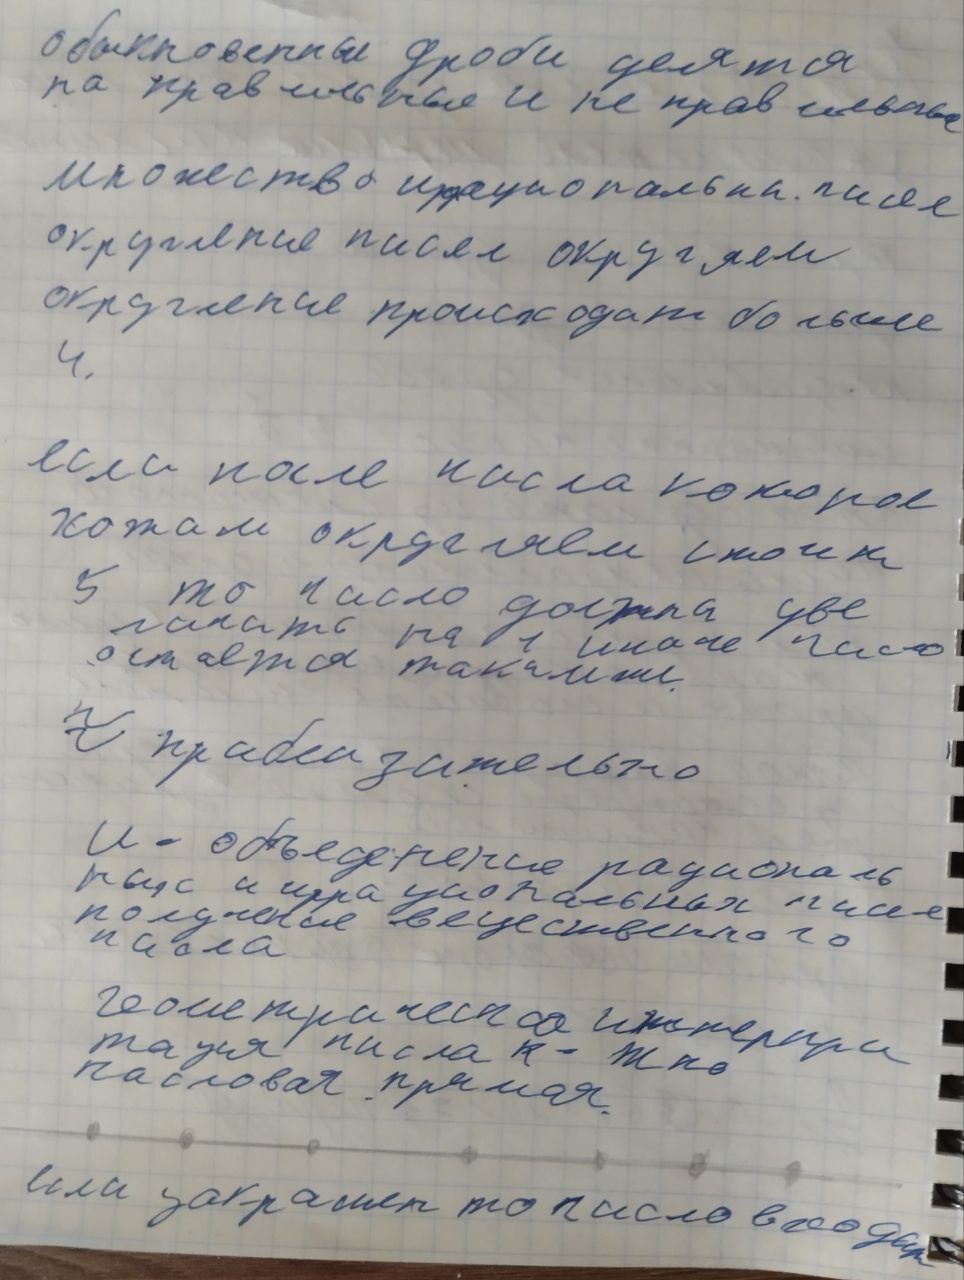 обыкновенные дроби делятся
на правильные и не правильные
множество иррациональн. чисел
округление чисел округляем
округление происходит больше
4.
если после числа которое
хотим округляем стоит
5 то число должна уве
личить на 1 иначе число
остается такимже.
приблизительно
U - объеденение рациональ
ных и иррациональных чисел
получение вещественного
числа
геометрическая интерпри
тация числа R - это
числовая прямая.
если закрашен то число входит